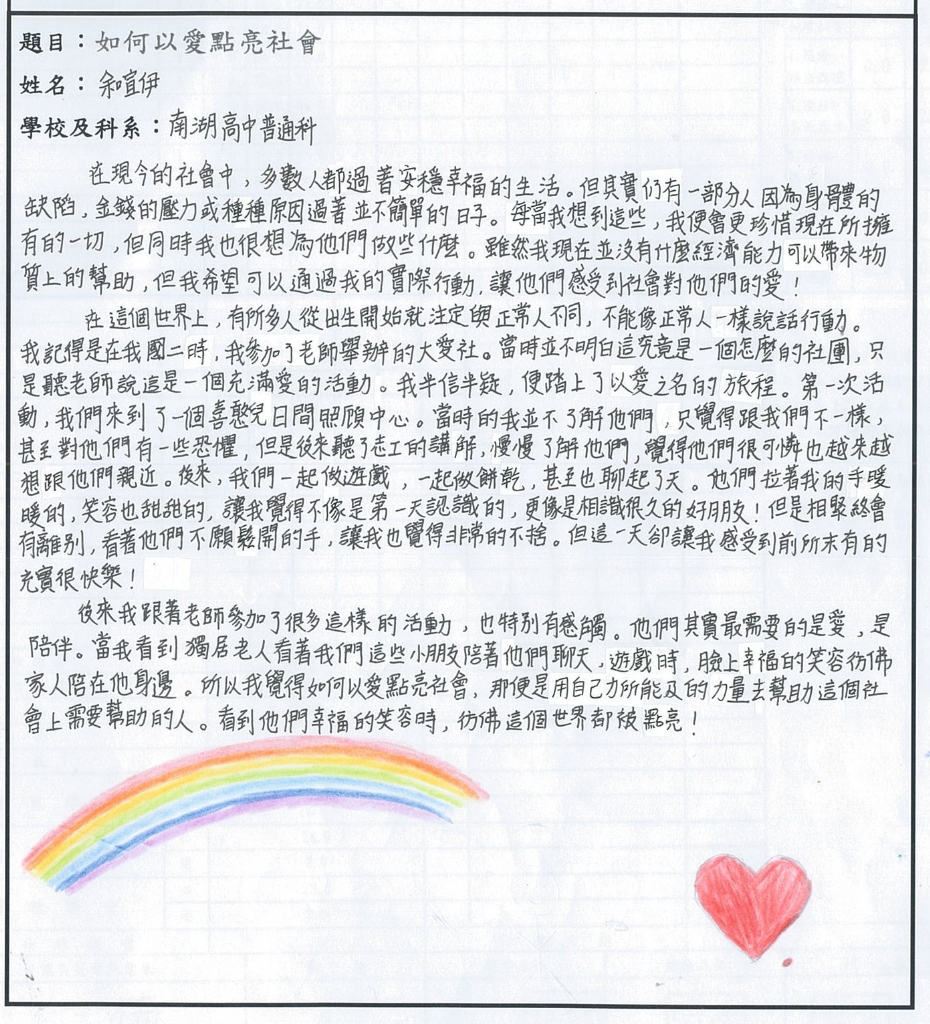 題目：如何以愛點亮社會
姓名：余宜伊
學校及科系：南湖高中普通科
在現今的社會中，多數人都過著安穩幸福的生活。但其實仍有一部分人因為身體的
缺陷，金錢的壓力或種種原因過著並不簡單的日子。每當我想到這些，我便會更珍惜現在所擁
有的一切，但同時我也很想為他們做些什麼。雖然我現在並沒有什麼經濟能力可以帶來物
質上的幫助，但我希望可以通過我的實際行動，讓他們感受到社會對他們的愛！
在這個世界上，有所多人從出生開始就注定與正常人不同，不能像正常人一樣說話行動。
我記得是在我國二時，我參加了老師舉辦的大愛社。當時並不明白這究竟是一個怎麼的社團，只
是聽老師說這是一個充滿愛的活動。我半信半疑，便踏上了以愛之名的旅程。第一次活
動，我們來到了一個喜憨兒日間照顧中心。當時的我並不了解他們，只覺得跟我們不一樣，
甚至對他們有一些恐懼，但是後來聽了志工的講解，慢慢了解他們，覺得他們很可憐也越來越
想跟他們親近。後來，我們一起做遊戲，一起做餅乾，甚至也聊起了天。他們拉著我的手暖
暖的，笑容也甜甜的，讓我覺得不像是第一天認識的，更像是相識很久的好朋友！但是相聚終會
有離別，看著他們不願鬆開的手，讓我也覺得非常的不捨。但這一天卻讓我感受到前所未有的
充實很快樂！
後來我跟著老師參加了很多這樣的活動，也特別有感觸。他們其實最需要的是愛，是
陪伴。當我看到獨居老人看著我們這些小朋友陪著他們聊天，遊戲時，臉上幸福的笑容彷佛
家人陪在他身邊。所以我覺得如何以愛點亮社會，那便是用自己力所能及的力量去幫助這個社
會上需要幫助的人。看到他們幸福的笑容時，彷彿這個世界都被點亮！